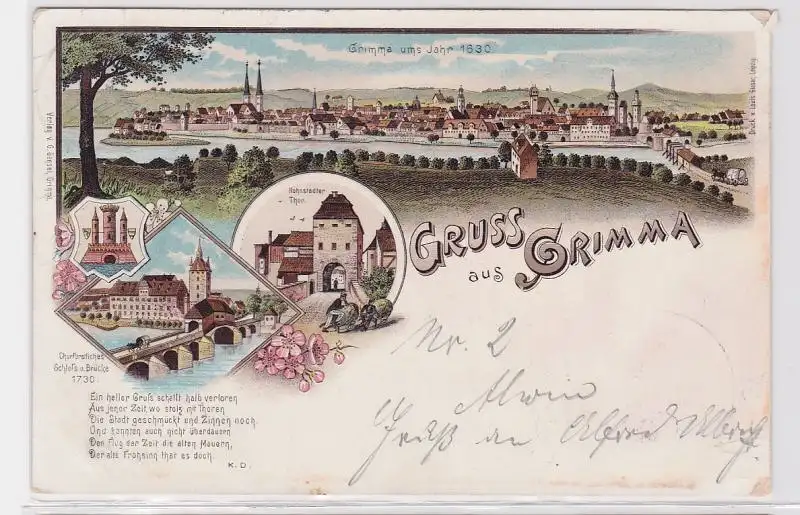 Grimma ums Jahr 1630.
Hohnstädter
Thor.
GRUSS
aus GRIMMA
Churfürstliches
Schloß u. Brücke
1730.
Ein heller Gruß schallt halb verloren
Aus jener Zeit, wo stolz mit Thoren
Die Stadt geschmückt und Zinnen noch.
Und konnten auch nicht überdauern
Den Flug der Zeit die alten Mauern,
Der alte Frohsinn that es doch.
K. D.
Nr. 2
Alwin
Gruß an Alfred